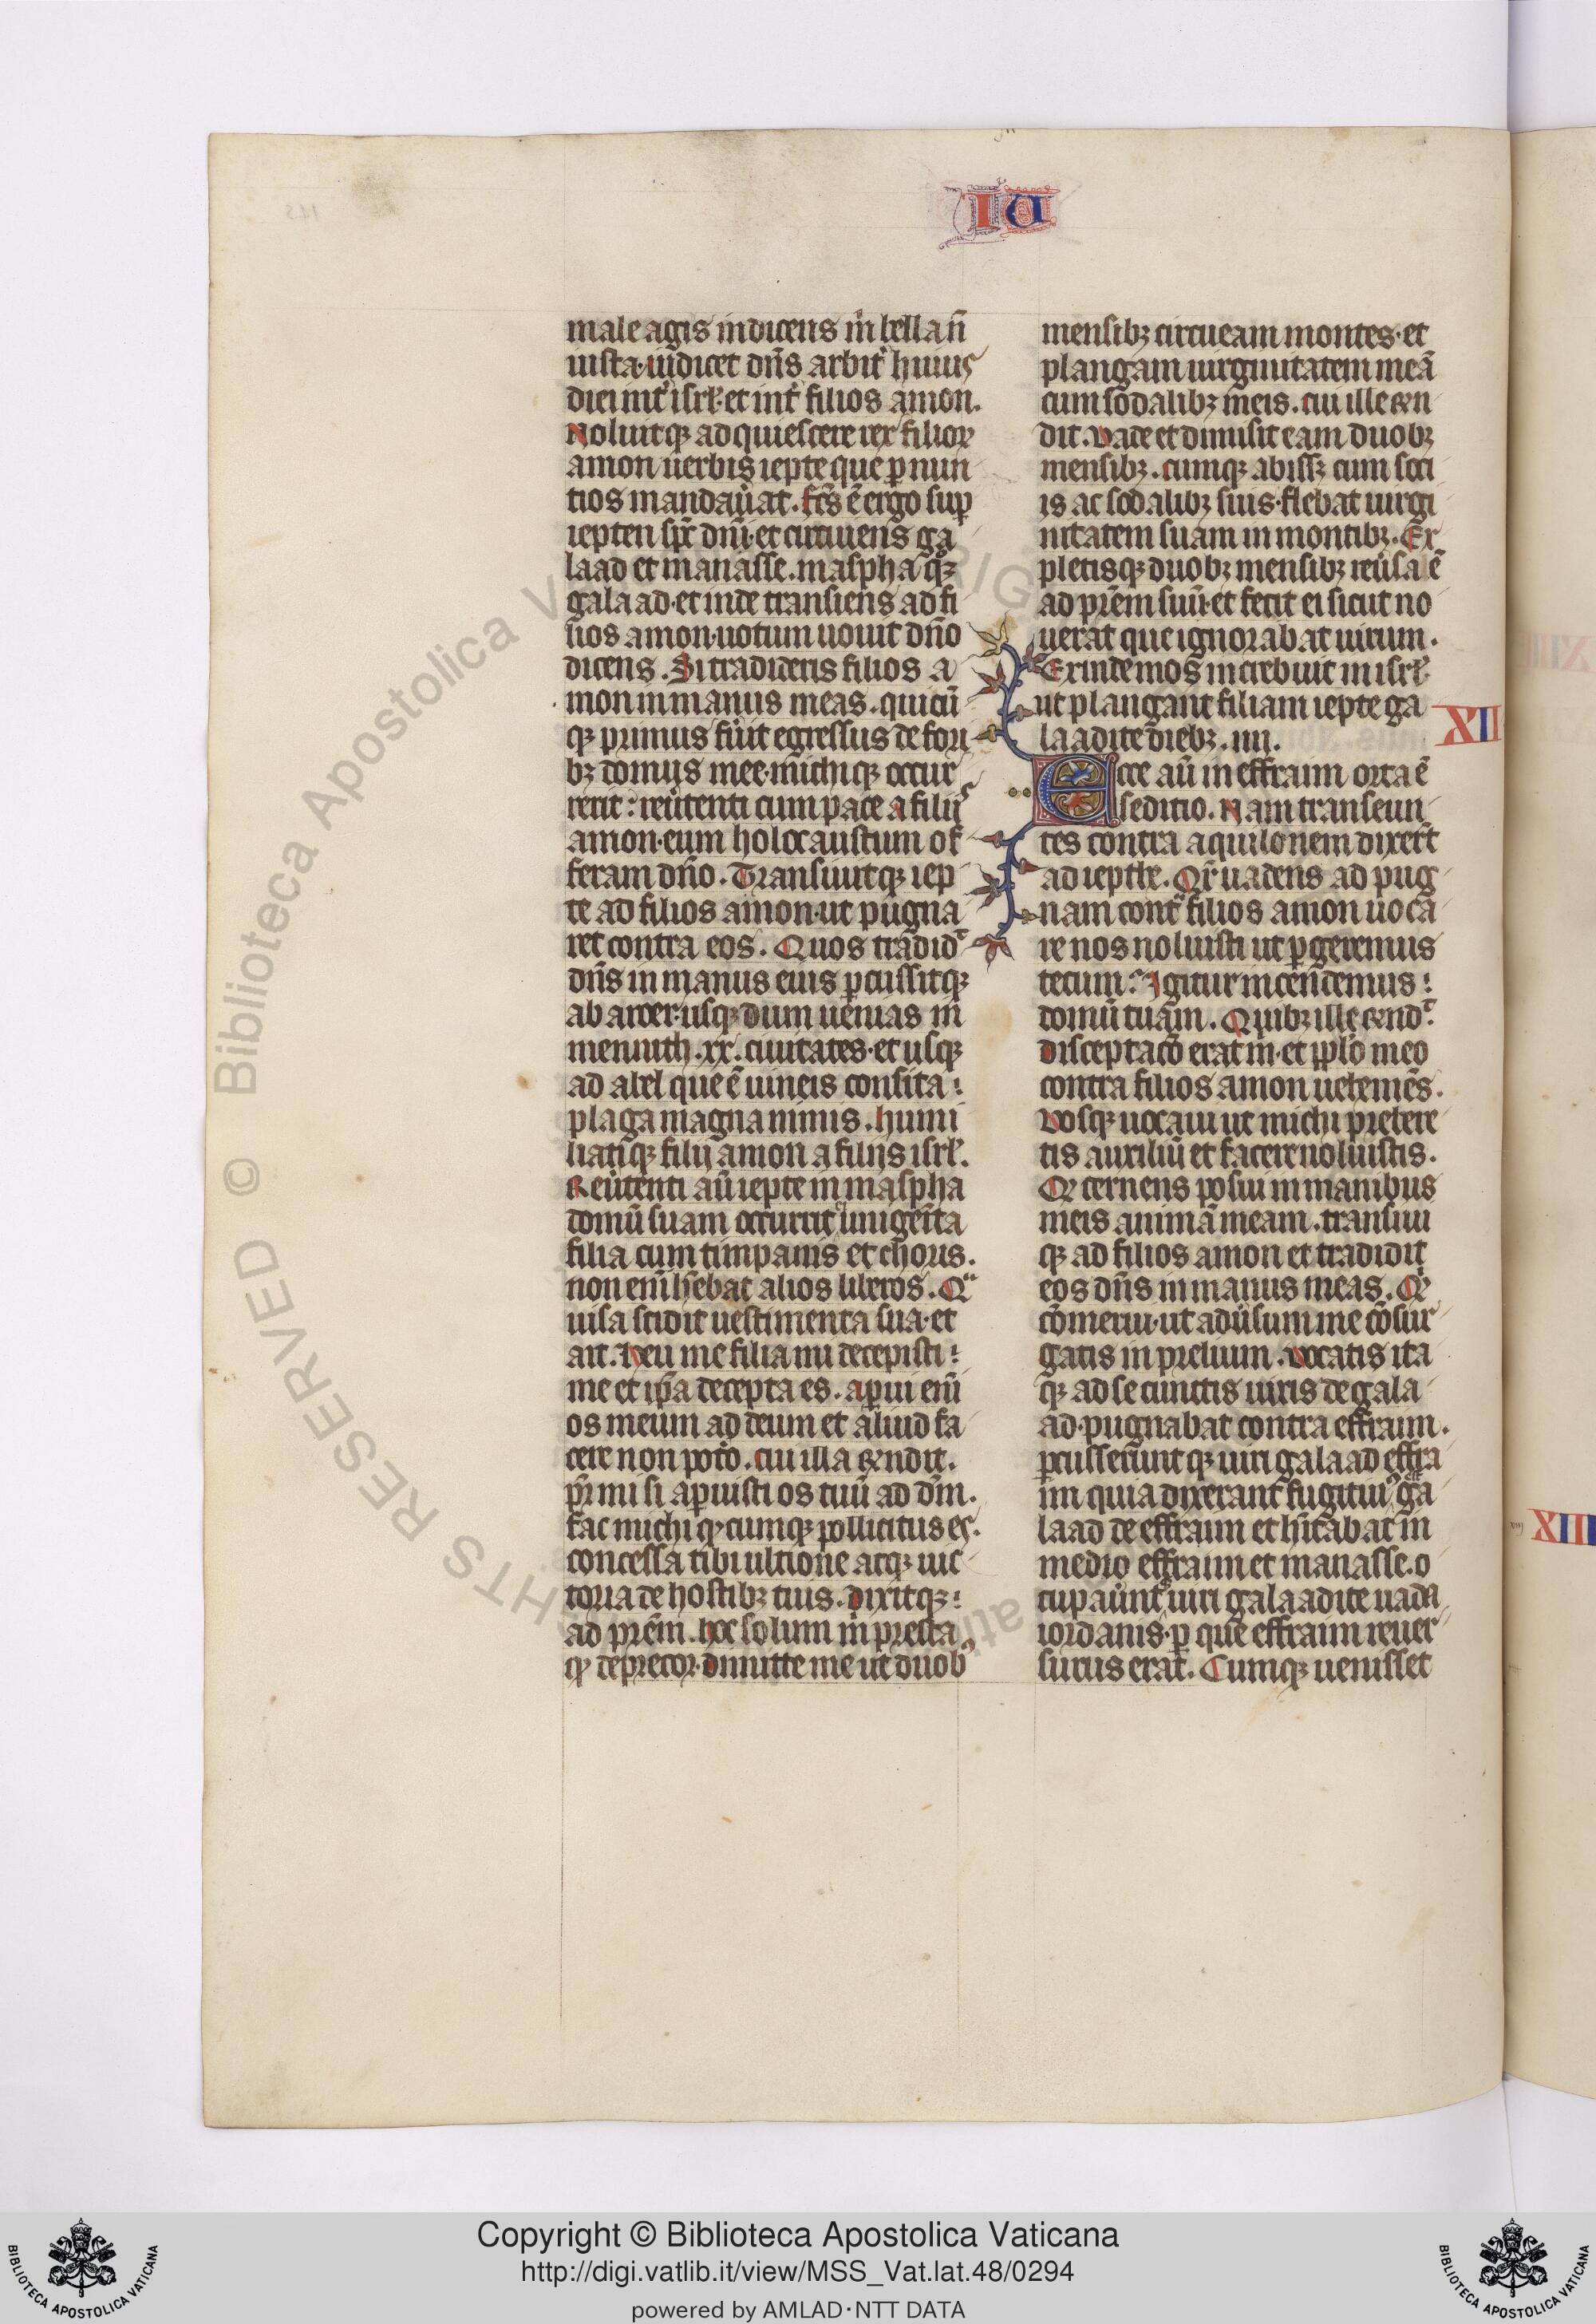 IU
male agis indicens m̅ bella n̅
iusta. iudicet dn̅s arbit͛ huius
diei int͛ isrl̅. et int͛ filios amon.
Noluitqꝫ adquiescere rex filioꝝ
amon uerbis iepte que ꝑ nun
tios mandau͛at. fc̅s e̅ ergo suꝑ
iepten sp̅c dn̅i. et circuiens ga
laad et manasse. maspha qͦꝫ
galaad. et inde transiens ad fi
lios amon. uotum uouit dn̅o
dicens. Si tradideris filios a
mon in manus meas. quicu̅
qꝫ primus fu͛it egressus de fori
bꝫ domus mee. michiqꝫ occur
rerit: reu͛tenti cum pace a filijs
amon. eum holocaustum of
feram dn̅o. Transiuitqꝫ iep
te ad filios amon. ut pugna
ret contra eos. Quos tradidᷤ
dn̅s in manus eius ꝑcussitqꝫ
ab aroer. usqꝫ dum uenias in
mennith. xx. ciuitates. et usqꝫ
ad abel que e̅ uineis consita:
plaga magna nimis. humi
liatiqꝫ filij amon a filijs isrl̅.
Reu͛tenti au̅ iepte in maspha
domu̅ suam occurrit unigen̅ta
filia cum timpanis et choris.
non eni̅ h̅ebat alios liberos. Qᵃ
uisa scidit uestimenta sua. et
ait. heu me filia mi decepisti:
me et ip̅a decepta es. aꝑui eni̅
os meum ad deum et aliud fa
cere non potͦo. cui illa rn̅dit.
pr̅ mi si aꝑuisti os tuu̅ ad dn̅m.
fac michi qͦcumqꝫ pollicitus es.
concessa tibi ultione atqꝫ uic
toria de hostibꝫ tuis. dixitqꝫ:
ad prem̅. hoc solum m̅ presta
qͦ deprecor. dimitte me ut duobꝰ
mensibꝫ circueam montes. et
plangam uirginitatem mea̅
cum sodalibꝫ meis. cui ille rn̅
dit. Vade et dimisit eam duobꝫ
mensibꝫ. cumqꝫ abissꝫ cum soci
is ac sodalibꝫ suis. flebat uirgi
nitatem suam in montibꝫ. Ex
pletisqꝫ duobꝫ mensibꝫ reu͛sa e̅
ad prem̅ suu̅. et fecit ei sicut uo
uerat que ignorabat uirum.
Exinde mos increbuit in isrl̅.
ut plangant filiam iepte ga
laadite diebꝫ. iiii.
XII
Ecce au̅ in effraim orta e̅
seditio. Nam transeun
tes contra aquilonem dixer̅t
ad iepthe. Qr̅ uadens ad pug
nam contᵃ filios amon uoca
re nos noluisti ut ꝑgeremus
tecum? Igitur incendemus:
domu̅ tuam. Quibꝫ ille rn̅dᷤ.
disceptaco̅ erat m̅. et pplo̅ meo
contra filios amon uehemen̅s.
Vosqꝫ uocaui ut michi prebere
tis auxiliu̅ et facere noluistis.
Qꝫ cernens posui in manibus
meis anima̅ meam. transiui
qꝫ ad filios amon et tradidit
eos dn̅s in manus meas. Qͥd
co̅merui. ut adu͛sum me co̅sur
gatis in prelium. Vocatis ita
qꝫ ad se cunctis uiris de gala
ad. pugnabat contra effraim.
ꝑcusserunt qꝫ uiri galaad effra
im quia dixerant fugitiuꝰ ga
laad de effraim et hi̅tabat in
medio effraim et manasse. o
cupau͛nt uiri galaadite uada
iordanis. ꝑ que effraim reuer
surus erat. Cumqꝫ uenisset
XIII
© Biblioteca Apostolica Vaticana
RIGHTS RESERVED
Copyright © Biblioteca Apostolica Vaticana
http://digi.vatlib.it/view/MSS_Vat.lat.48/0294
powered by AMLAD·NTT DATA
BIBLIOTECA APOSTOLICA VATICANA
BIBLIOTECA APOSTOLICA VATICANA